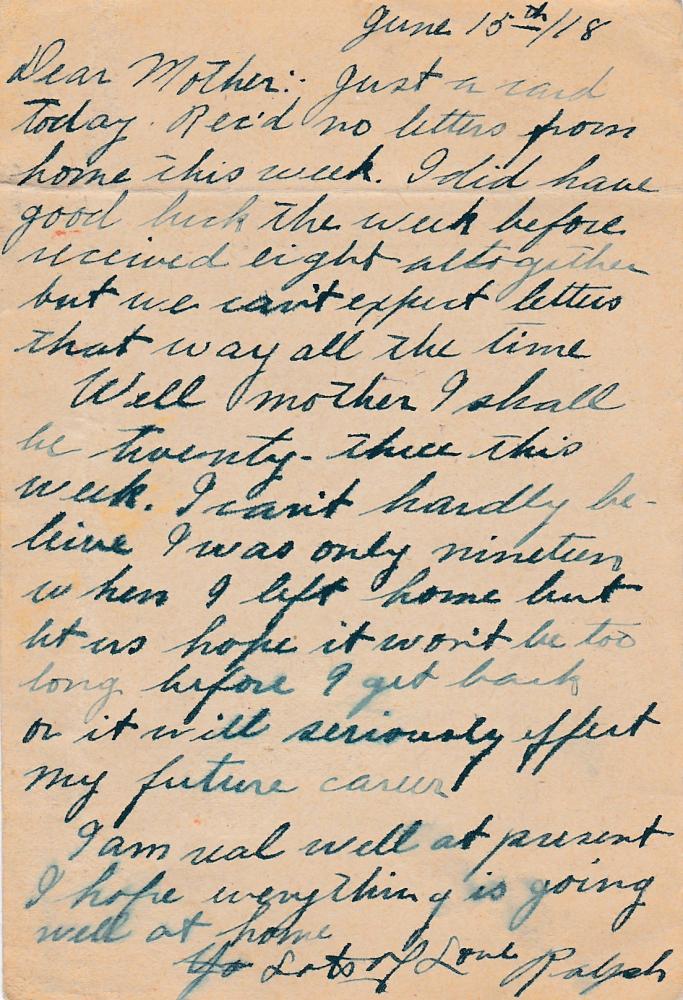 June 15th/18
Dear Mother:- Just a card
today. Rec'd no letters from
home this week. I did have
good luck the week before
received eight altogether
but we can't expect letters
that way all the time
Well mother I shall
be twenty-three this
week. I can't hardly be-
leive I was only nineteen
when I left home but
let us hope it won't be too
long before I get back
or it will seriously effect
my future career
I am real well at present
I hope everything is going
well at home
Lots of Love Ralph